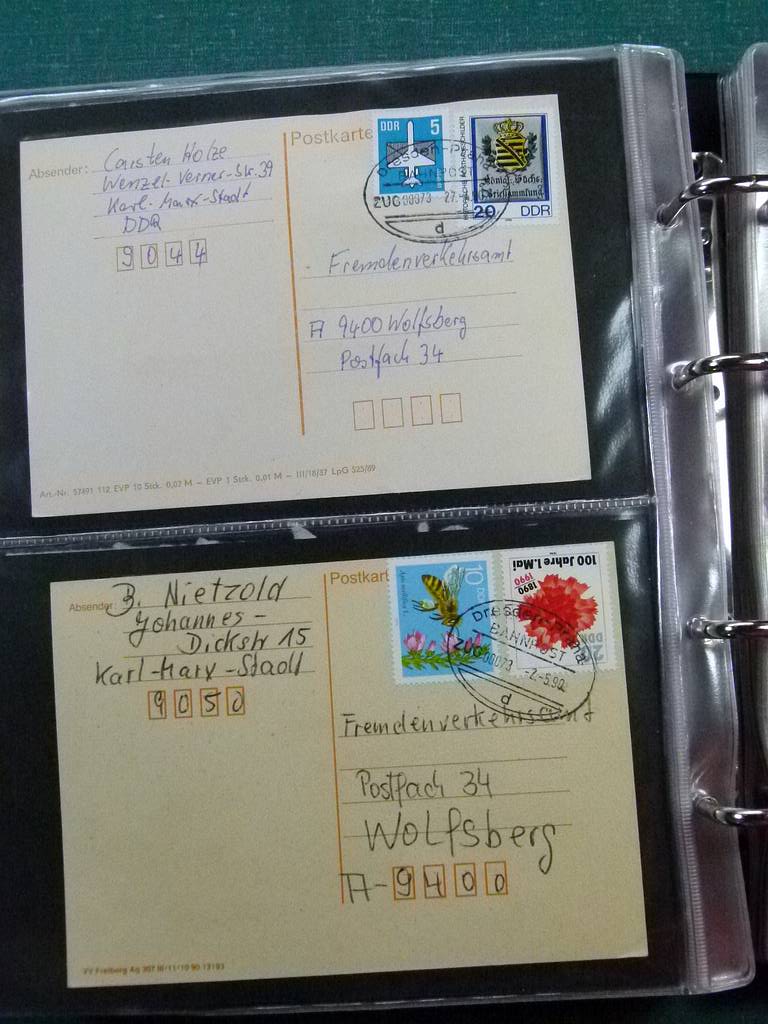 Absender: Carsten Holze
Wenzel-Verner-Str. 39
Karl-Marx-Stadt
DDR
9044
Postkarte
DDR 5
König. Sächs.
Briefsammlung
20 DDR
Dresden-
BAHNPOST
ZUG 00073 27.
d
Fremdenverkehrsamt
A 9400 Wolfsberg
Postfach 34
Art.-Nr. 57491 112 EVP 10 Stck. 0,07 M — EVP 1 Stck. 0,01 M — III/18/37 LpG 525/89
Absender B. Nietzold
Johannes-
Dickstr 15
Karl-Marx-Stadt
9050
Postkart
10 DDR
100 Jahre 1. Mai
1890
1990
20 DDR
Dresden-Praha
BAHNPOST
ZUG 00073 -2.-5.90
d
Fremdenverkehrsamt
Postfach 34
Wolfsberg
A-9400
VV Freiberg Ag 307 III/11/10 90 13193